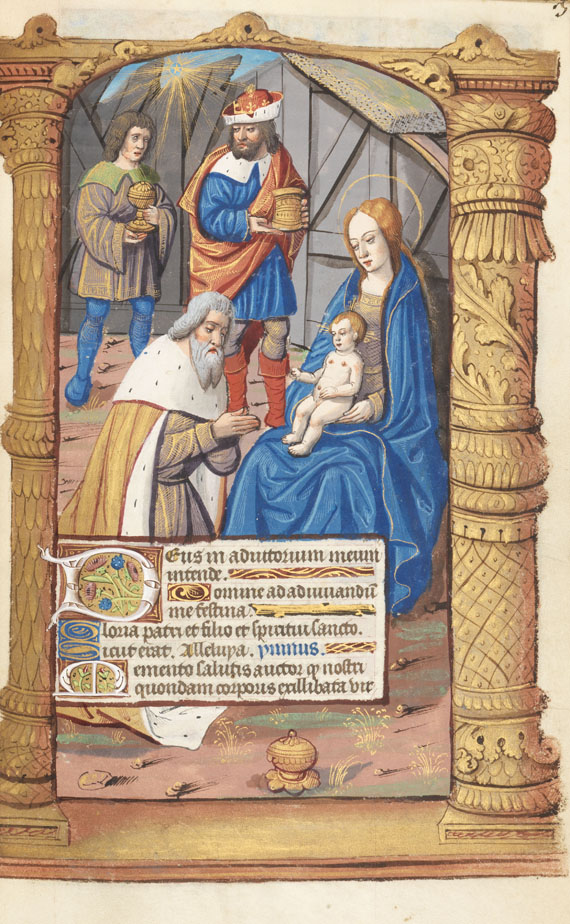 Deus in adiutorium meum
intende.
Domine ad adiuuandū
me festina.
Gloria patri et filio et spiritui sancto.
Sicut erat. Alleluya. ymnus.
Memento salutis auctor q̄ nostri
quondam corporis ex illibata vir